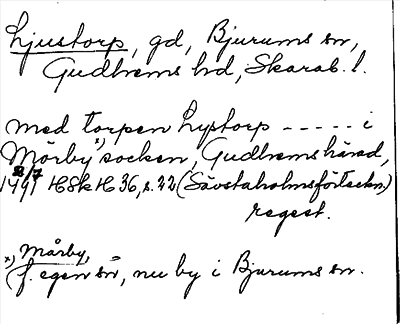 Ljustorp, gd, Bjurums sn,
Gudhems hd, Skarab. l.
med torpen Lystorp ----- i
Mörby x) socken, Gudhems härad,
2/7
1491 HSkH 36, s. 22 (Sävstaholmsförteckn.)
regest.
x) Mårby,
f. egen sn, nu by i Bjurums sn.